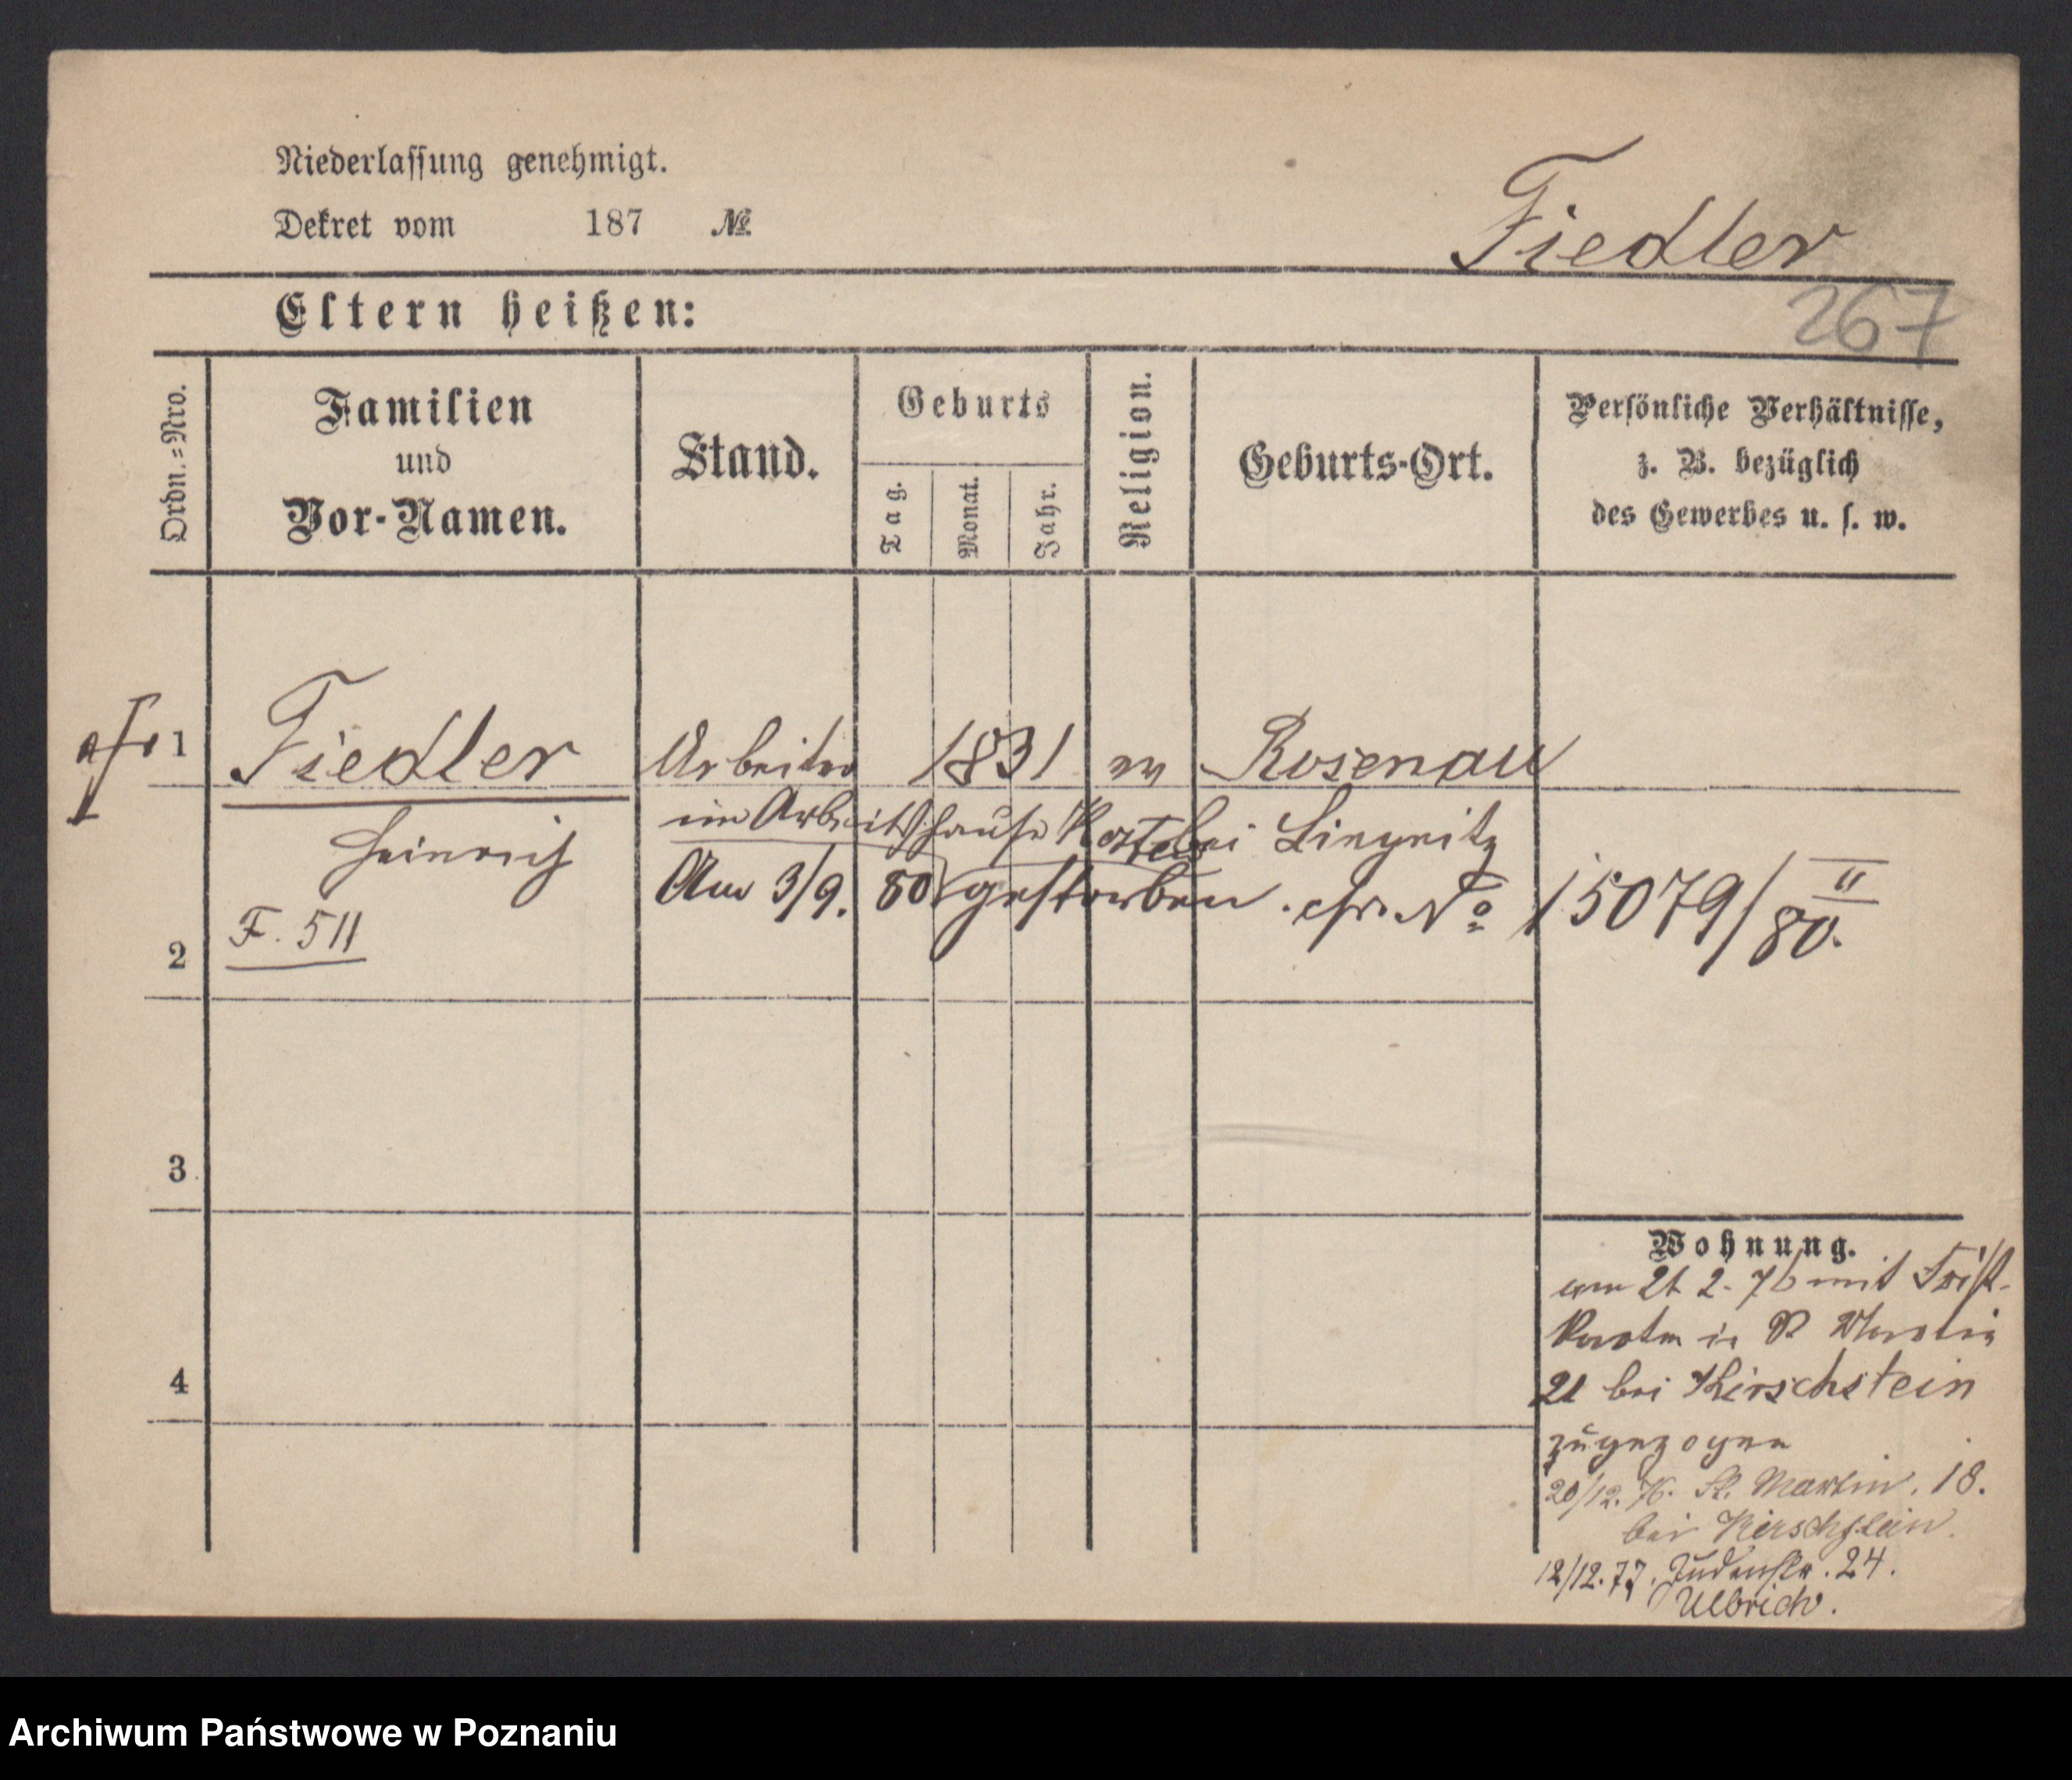 Niederlassung genehmigt.
Dekret vom 187 №
Fiedler
Eltern heißen:
267
Ordn.=Nro.
Familien
und
Vor-Namen.
Stand.
Geburts
Tag.
Monat.
Jahr.
Religion.
Geburts-Ort.
Persönliche Verhältnisse,
z. B. bezüglich
des Gewerbes u. s. w.
1 Fiedler Arbeiter 1831 ev Rosenau
Heinrich
im Arbeitshause Kosten
bei Liegnitz
Am 3/9. 80 gestorben. cfr. № 15079/II 80.
F. 511
2
3
4
Wohnung.
am 21 2. 76 mit Frist-
karten in St Martin
21 bei Hirschstein
zugezogen
20/12. 76. St. Martin. 18.
bei Hirschstein.
12/12. 77. Judenstr. 24.
Ulbrich.
Archiwum Państwowe w Poznaniu